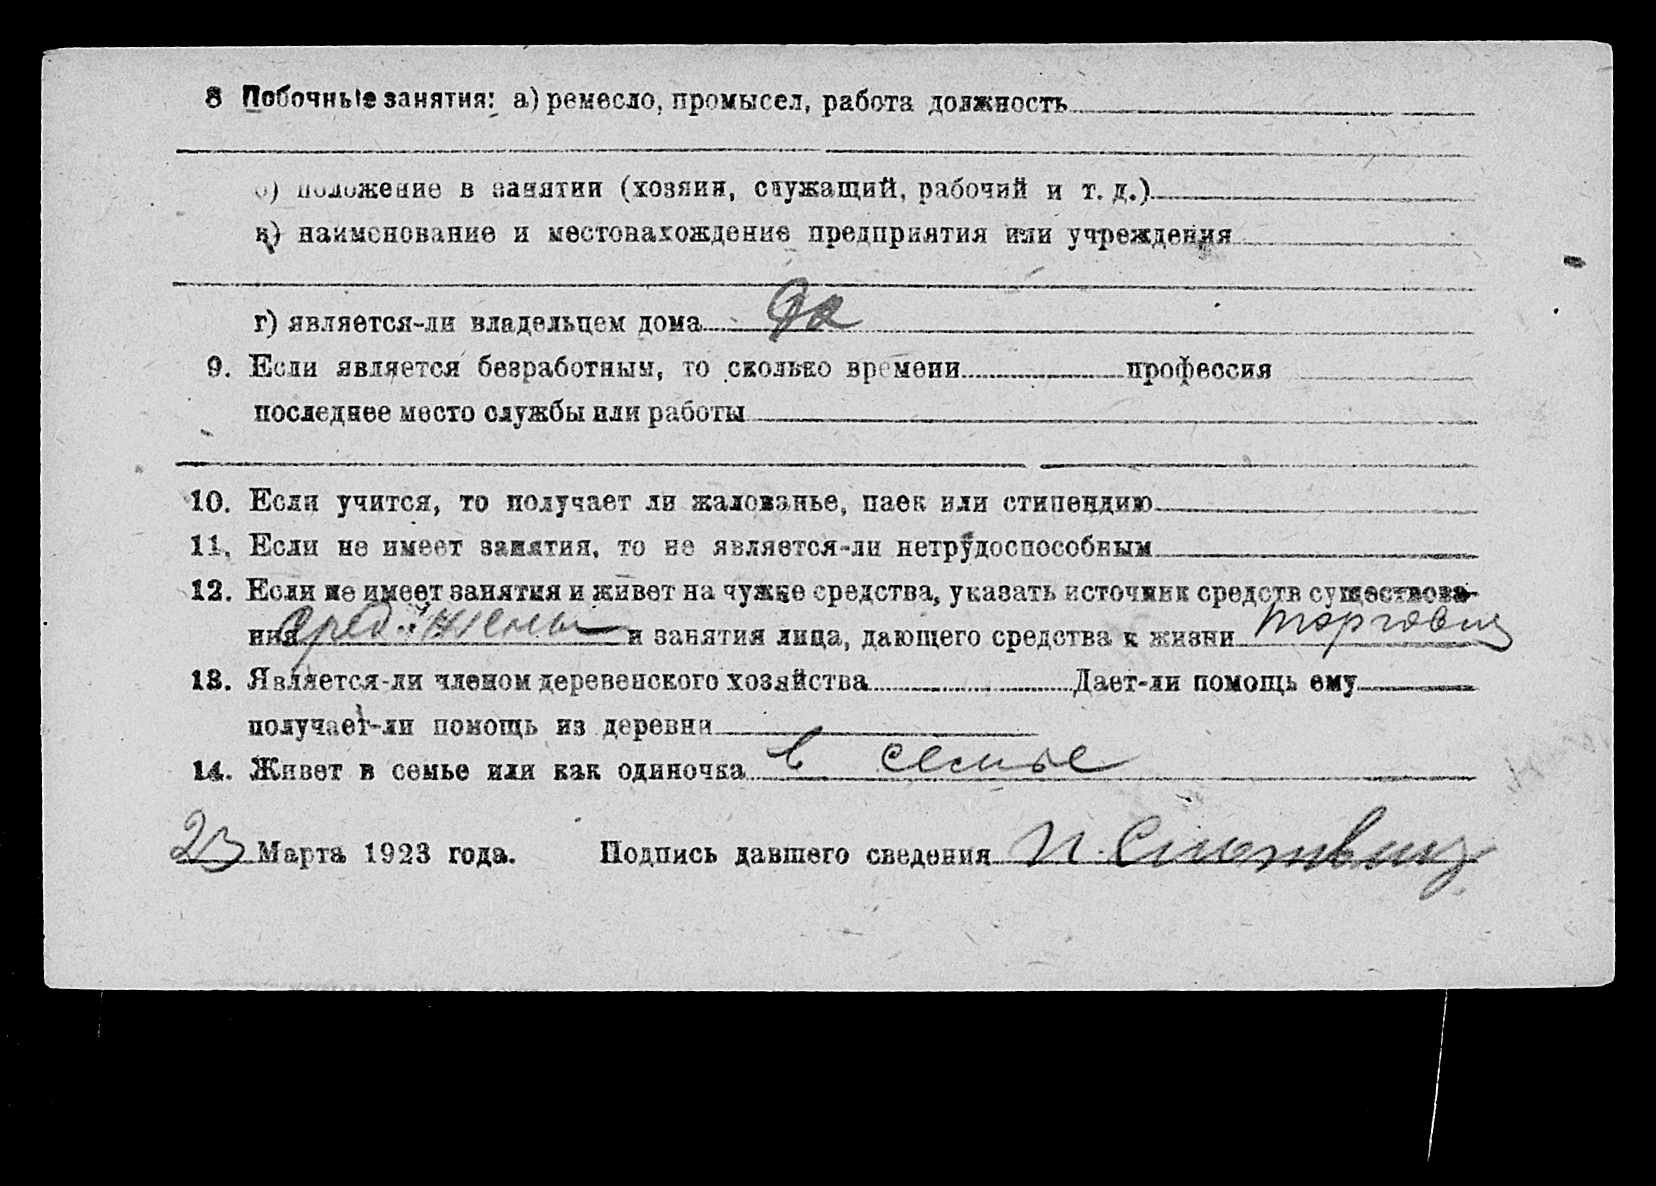 8 Побочные занятия: а) ремесло, промысел, работа должность
б) положение в занятии (хозяин, служащий, рабочий и т. д.)
в) наименование и местонахождение предприятия или учреждения
г) является-ли владельцем дома Да
9. Если является безработным, то сколько времени профессия
последнее место службы или работы
10. Если учится, то получает ли жалованье, паек или стипендию
11. Если не имеет занятия, то не является-ли нетрудоспособным
12. Если не имеет занятия и живет на чужие средства, указать источник средств существова-
ния сред. жены и занятия лица, дающего средства к жизни торговец
13. Является-ли членом деревенского хозяйства Дает-ли помощь ему
получает-ли помощь из деревни
14. Живет в семье или как одиночка в семье
23 Марта 1923 года. Подпись давшего сведения